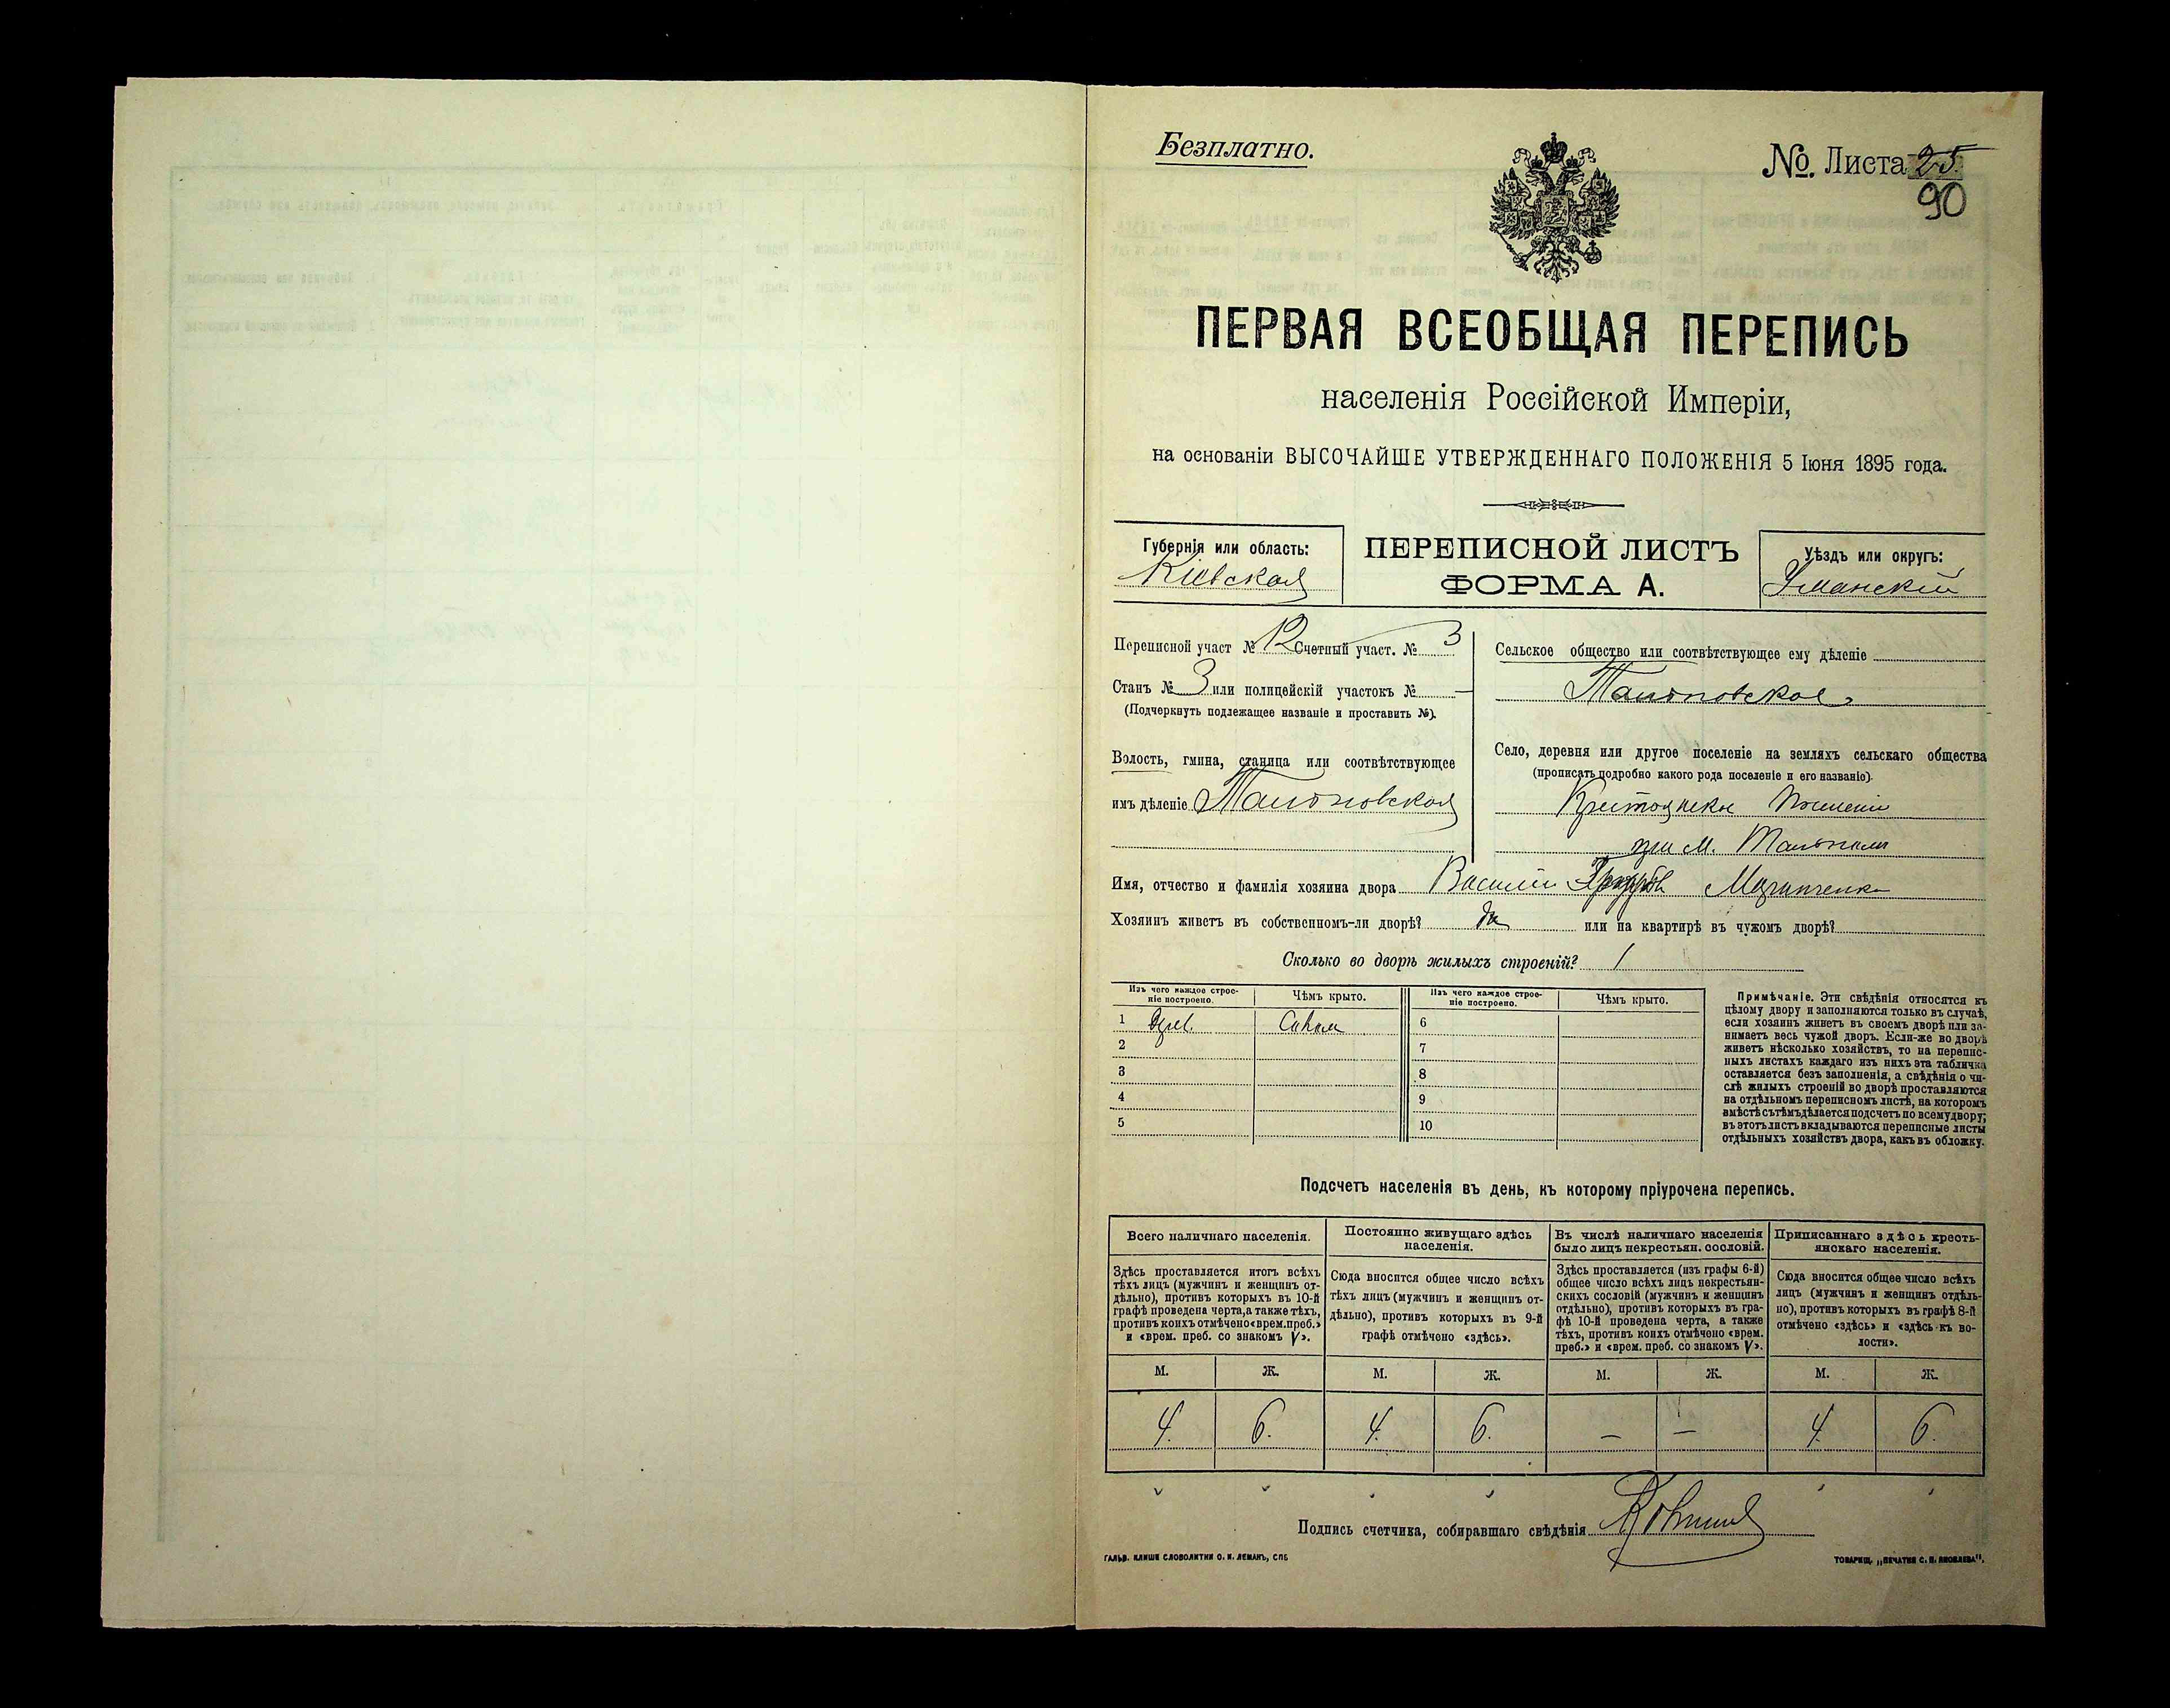 Безплатно.
№. Листа 25
90
ПЕРВАЯ ВСЕОБЩАЯ ПЕРЕПИСЬ
населенія Россійской Имперіи,
на основаніи ВЫСОЧАЙШЕ УТВЕРЖДЕННАГО ПОЛОЖЕНІЯ 5 Іюня 1895 года.
Губернія или область:
Кіевская
ПЕРЕПИСНОЙ ЛИСТЪ
ФОРМА А.
Уѣздъ или округъ:
Уманскій
Переписной участ № 12 Счетный участ. № 3
Станъ № 3 или полицейскій участокъ № —
(Подчеркнуть подлежащее названіе и проставить №).
Волость, гмина, станица или соотвѣтствующее
имъ дѣленіе Тальновская
Сельское общество или соотвѣтствующее ему дѣленіе
Тальновское
Село, деревня или другое поселеніе на земляхъ сельскаго общества
(прописать подробно какого рода поселеніе и его названіе).
при м.
Имя, отчество и фамилія хозяина двора Василій
Хозяинъ живетъ въ собственномъ-ли дворѣ? да или на квартирѣ въ чужомъ дворѣ?
Сколько во дворѣ жилыхъ строеній? 1
Изъ чего каждое строе-
ніе построено.
Чѣмъ крыто.
Изъ чего каждое строе-
ніе построено.
Чѣмъ крыто.
1 Дерев. 6
2 7
3 8
4 9
5 10
Примѣчаніе. Эти свѣдѣнія относятся къ
цѣлому двору и заполняются только въ случаѣ,
если хозяинъ живетъ въ своемъ дворѣ или за-
нимаетъ весь чужой дворъ. Если-же во дворѣ
живетъ нѣсколько хозяйствъ, то на перепис-
ныхъ листахъ каждаго изъ нихъ эта табличка
оставляется безъ заполненія, а свѣдѣнія о чи-
слѣ жилыхъ строеній во дворѣ проставляются
на отдѣльномъ переписномъ листѣ, на которомъ
вмѣстѣ съ тѣмъ дѣлается подсчетъ по всему двору;
въ этотъ листъ вкладываются переписные листы
отдѣльныхъ хозяйствъ двора, какъ въ обложку.
Подсчетъ населенія въ день, къ которому пріурочена перепись.
Всего наличнаго населенія.
Здѣсь проставляется итогъ всѣхъ
тѣхъ лицъ (мужчинъ и женщинъ от-
дѣльно), противъ которыхъ въ 10-й
графѣ проведена черта, а также тѣхъ,
противъ коихъ отмѣчено «врем. преб.»
и «врем. преб. со знакомъ V».
Постоянно живущаго здѣсь
населенія.
Сюда вносится общее число всѣхъ
тѣхъ лицъ (мужчинъ и женщинъ от-
дѣльно), противъ которыхъ въ 9-й
графѣ отмѣчено «здѣсь».
Въ числѣ наличнаго населенія
было лицъ некрестьян. сословій.
Здѣсь проставляется (изъ графы 6-й)
общее число всѣхъ лицъ некрестьян-
скихъ сословій (мужчинъ и женщинъ
отдѣльно), противъ которыхъ въ гра-
фѣ 10-й проведена черта, а также
тѣхъ, противъ коихъ отмѣчено «врем.
преб.» и «врем. преб. со знакомъ V».
Приписаннаго здѣсь кресть-
янскаго населенія.
Сюда вносится общее число всѣхъ
лицъ (мужчинъ и женщинъ отдѣль-
но), противъ которыхъ въ графѣ 8-й
отмѣчено «здѣсь» и «здѣсь къ во-
лости».
М. Ж. М. Ж. М. Ж. М. Ж.
4. 6. 4. 6. — — 4. 6.
Подпись счетчика, собиравшаго свѣдѣнія
ГАЛЬВ. КЛИШЕ СЛОВОЛИТНИ О. И. ЛЕМАНЪ, СПБ
ТОВАРИЩ. „ПЕЧАТНЯ С. П. ЯКОВЛЕВА".